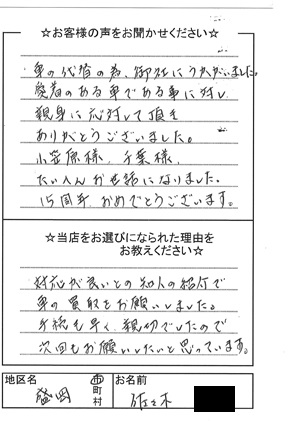 ☆お客様の声をお聞かせください☆
車の代替の為、御社にうかがいました。
愛着のある車である事に対し
親身に応対して頂き
ありがとうございました。
小笠原様、千葉様、
たいへんお世話になりました。
15周年おめでとうございます。
☆当店をお選びになられた理由を
お教えください☆
対応が良いとの知人の紹介で
車の買取をお願いしました。
手続も早く、親切でしたので
次回もお願いしたいと思っています。
地区名 盛岡 市町村 お名前 佐々木